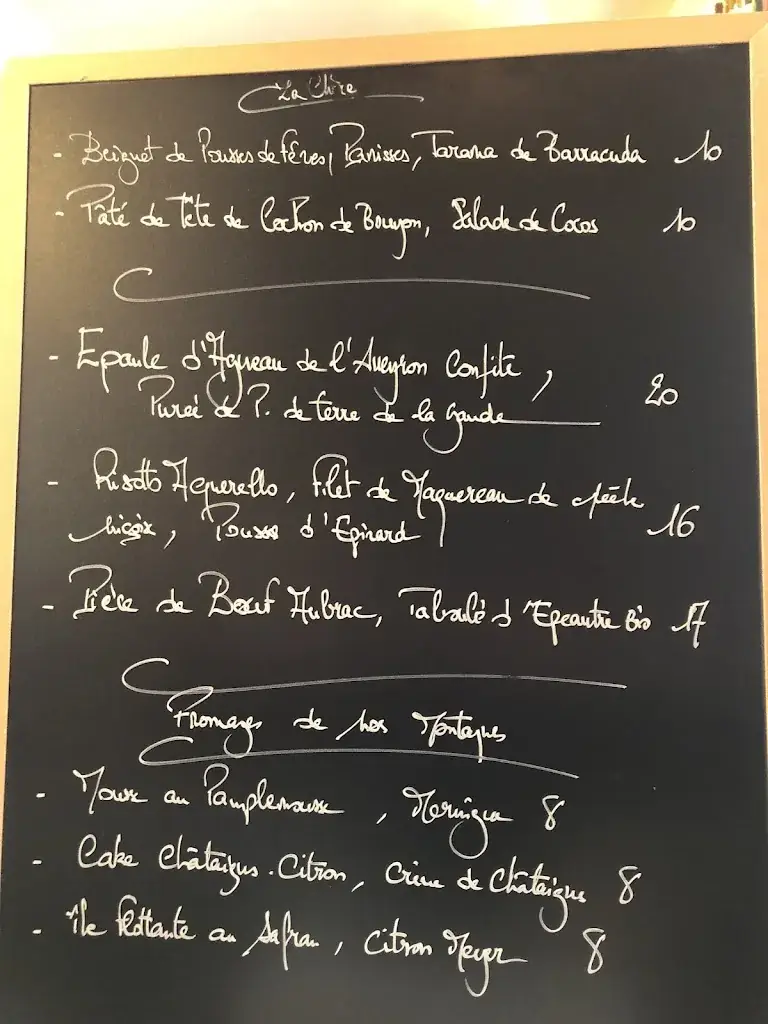 La Chire
- Beignet de Pousses de fêves, Panisses, Tarama de Barracuda 10
- Pâté de Tête de Cochon de Bouyon, Salade de Cocos 10
- Epaule d'Agneau de l'Aveyron Confite, 20
Purée de P. de terre de la Gaude
- Risotto Aquerello, Filet de Maquereau de pêche
niçoix, Pousse d'Epinard 16
- Pièce de Boeuf Aubrac, Taboulé d'Epeautre Bio 17
Fromages de nos Montagnes
- Mousse au Pamplemousse, Meringue 8
- Cake Châtaignes-Citron, Crème de Châtaignes 8
- île flottante au Safran, Citron Meyer 8